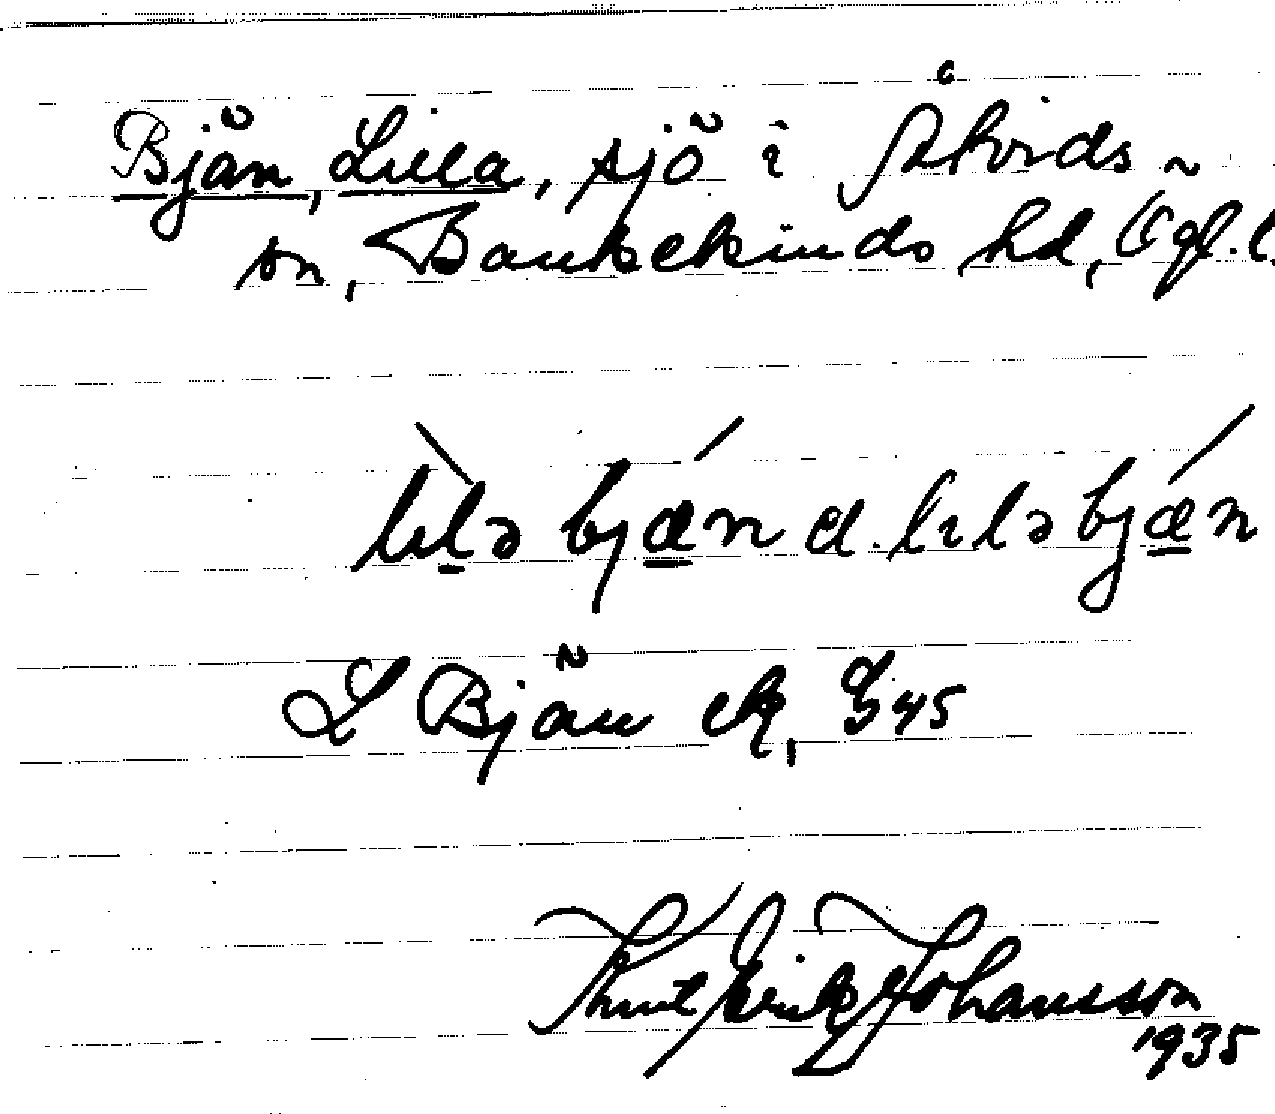 Bjän, Lilla, sjö i Åtvids-
sn, Bankekinds hd, Ögl. l.
lɪlə bjæn el. lɪlə bjæn
L Bjän ek, G45
Knut Erik Johansson
1935